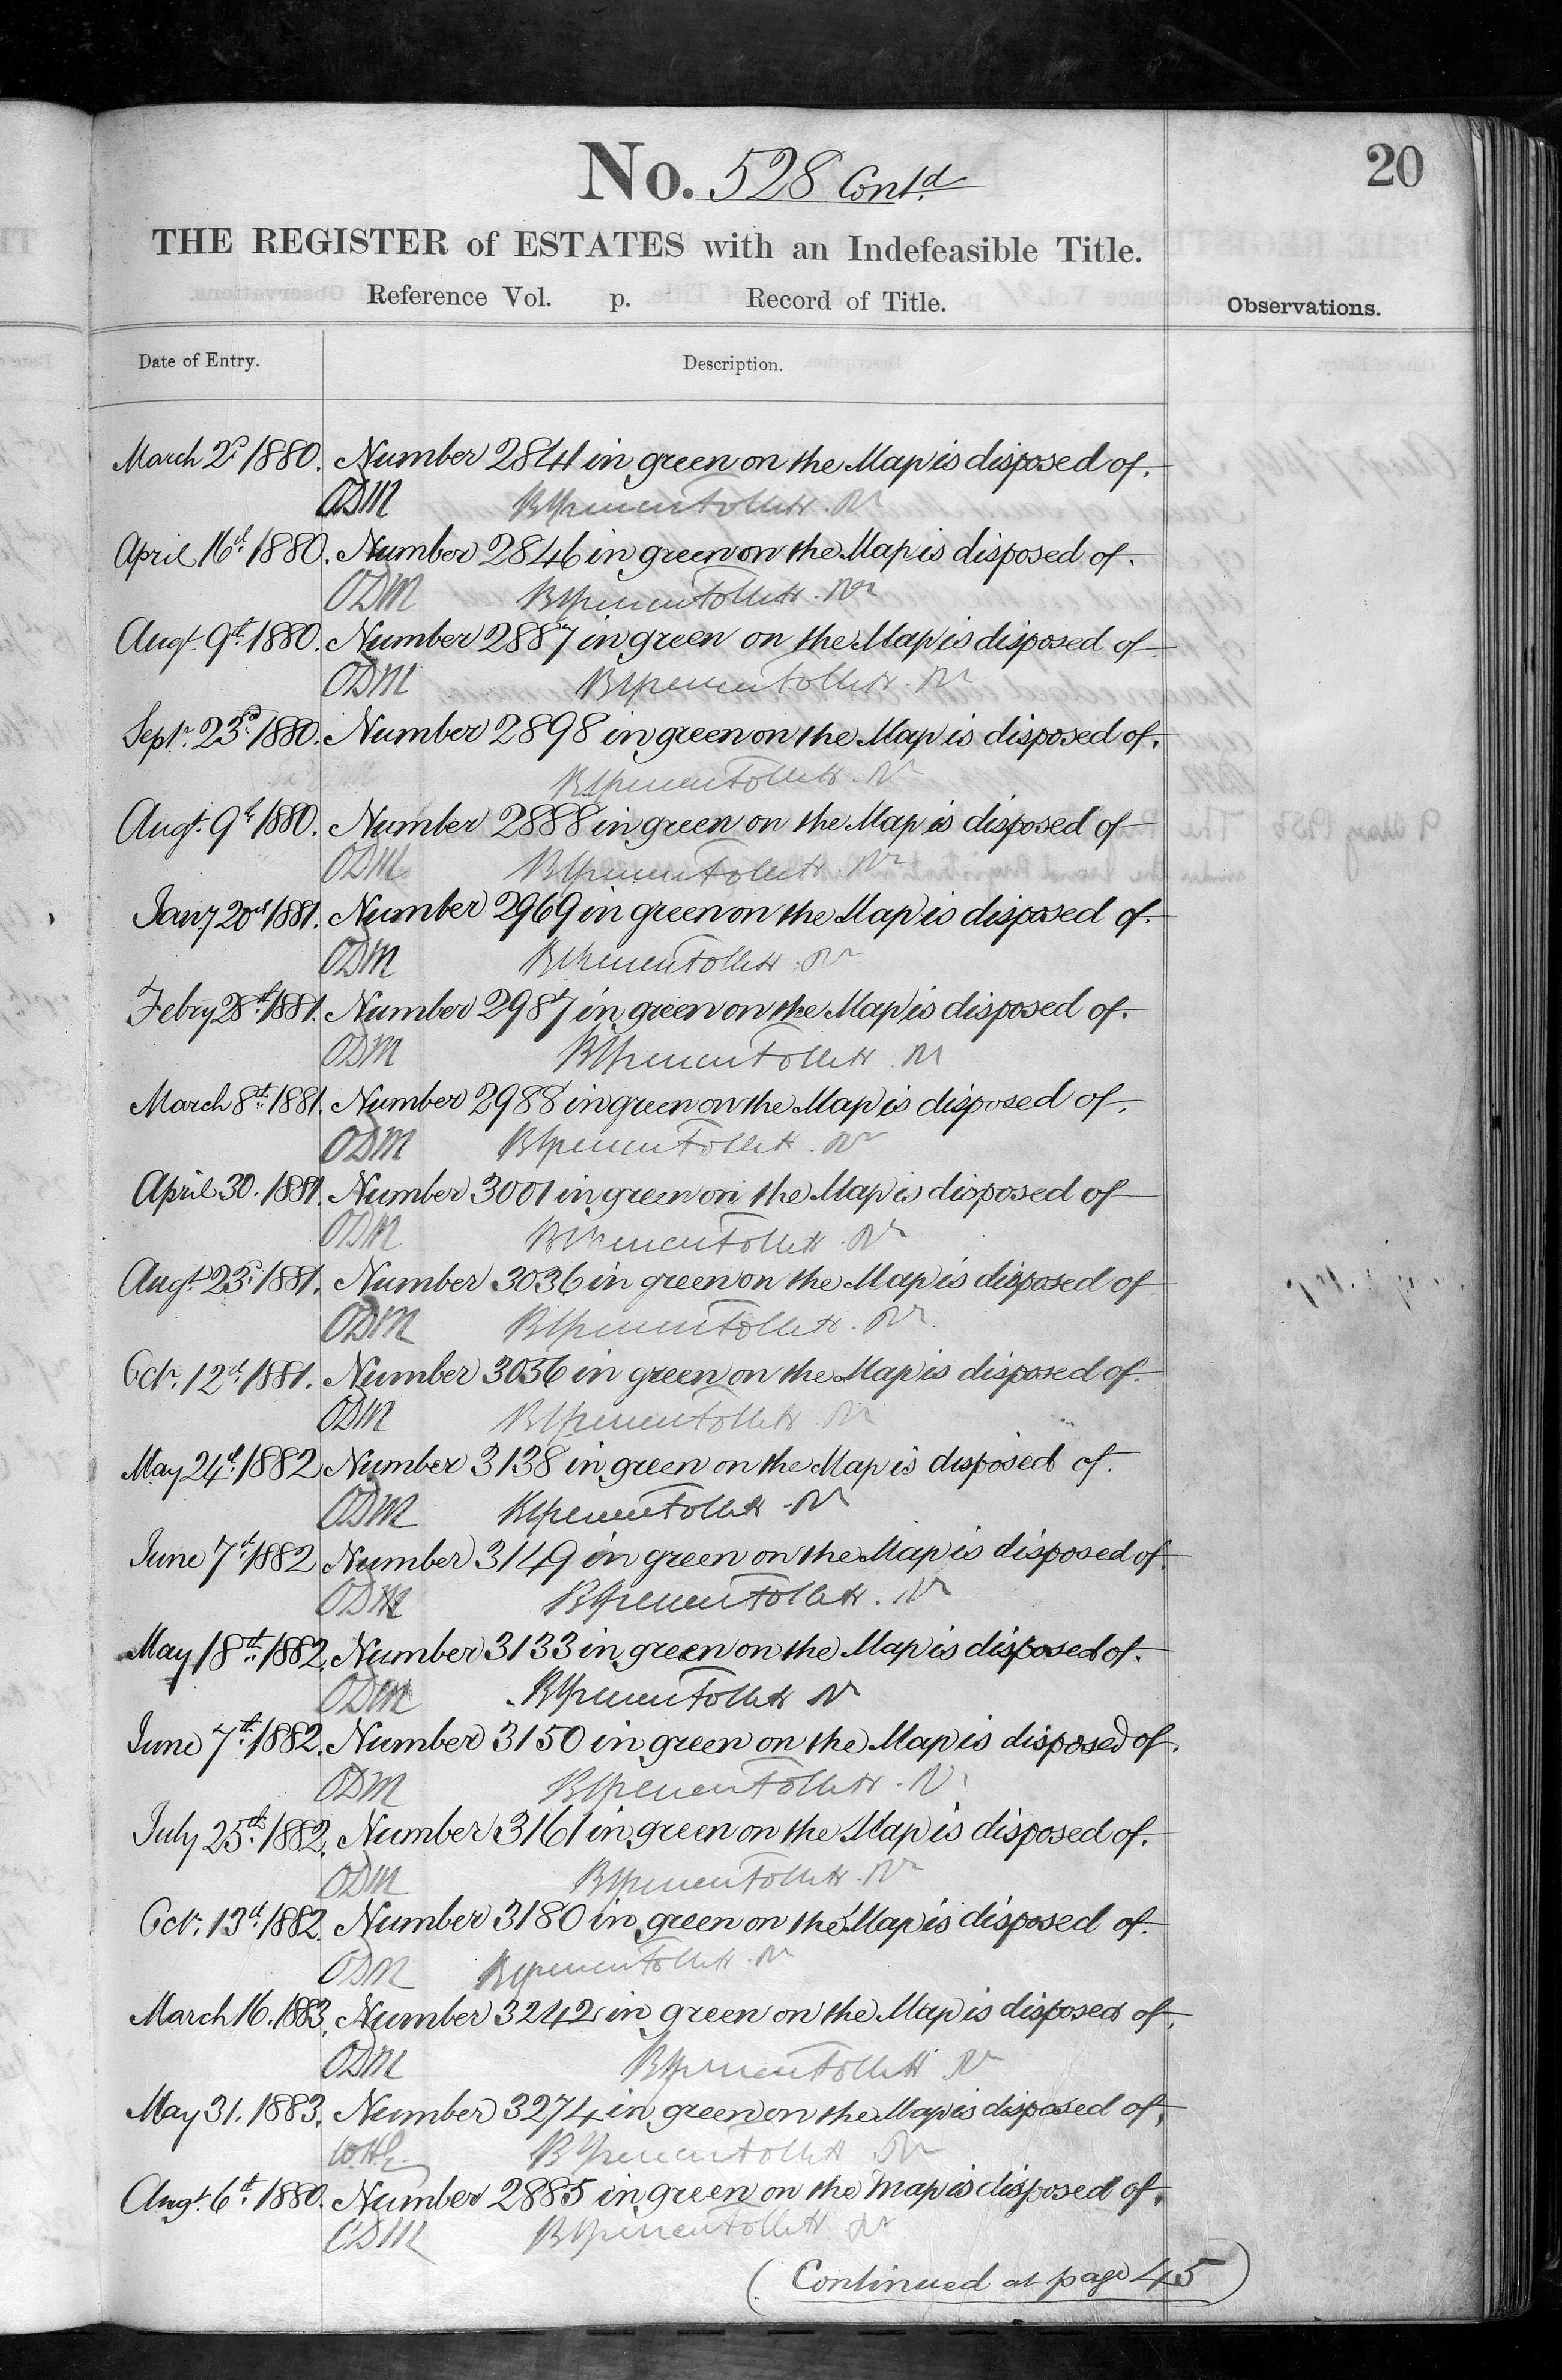 No. 528 Contd
20
THE REGISTER of ESTATES with an Indefeasible Title.
Reference Vol. p. Record of Title.
Observations.
Date of Entry. Description.
March 2d 1880. Number 2841 in green on the Map is disposed of.
ODM Brent Follett. Rr
April 16th 1880. Number 2846 in green on the Map is disposed of.
ODM Brent Follett. Rr
Augt. 9th 1880. Number 2887 in green on the Map is disposed of
ODM Brent Follett. Rr
Septr. 23rd 1880. Number 2898 in green on the Map is disposed of.
Brent Follett. Rr
Augt. 9th 1880. Number 2888 in green on the Map is disposed of
ODM Brent Follett. Rr
Jany 20th 1881. Number 2969 in green on the Map is disposed of.
ODM Brent Follett. Rr
Febry 28th 1881. Number 2987 in green on the Map is disposed of.
ODM Brent Follett. Rr
March 8th 1881. Number 2988 in green on the Map is disposed of.
ODM Brent Follett. Rr
April 30. 1881. Number 3001 in green on the Map is disposed of
ODM Brent Follett. Rr
Augt. 23d 1881. Number 3036 in green on the Map is disposed of
ODM Brent Follett. Rr
Octr. 12th 1881. Number 3056 in green on the Map is disposed of.
ODM Brent Follett. Rr
May 24th 1882 Number 3138 in green on the Map is disposed of.
ODM Brent Follett. Rr
June 7th 1882 Number 3149 in green on the Map is disposed of.
ODM Brent Follett. Rr
May 18th 1882. Number 3133 in green on the Map is disposed of.
ODM Brent Follett Rr
June 7th 1882. Number 3150 in green on the Map is disposed of.
ODM Brent Follett. Rr
July 25th 1882. Number 3161 in green on the Map is disposed of.
ODM Brent Follett. Rr
Octr. 13th 1882. Number 3180 in green on the Map is disposed of.
ODM Brent Follett. Rr
March 16. 1883. Number 3242 in green on the Map is disposed of.
ODM Brent Follett Rr
May 31. 1883. Number 3274 in green on the Map is disposed of.
Brent Follett Rr
Augt. 6th 1880. Number 2885 in green on the Map is disposed of.
ODM Brent Follett Rr
(Continued at page 45)